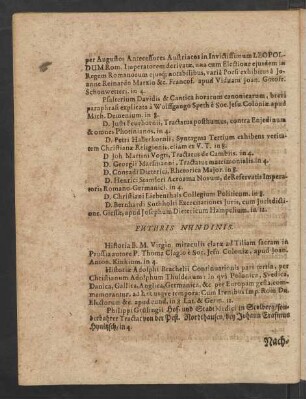 per Augustos Antecessores Austriacos in Invictissimum LEOPOL-
DUM Rom. Imperatorem derivatæ, una cum Electione ejusdem in
Regem Romanorum ejusq; notabilibus, varia Poesi exhibens à Jo-
anne Reinardo Martio &c. Francof. apud Viduam Joan. Gottofr.
Schönwetteri, in 4.
Psalterium Davidis & Cantica horarum canonicarum, brevi
paraphrasi explicata à Wolffgango Speth è Soc. Jesu Coloniæ, apud
Mich. Demenium, in 8.
D. Justi Feurbornii, Tractatus posthumus, contra Enjedinum
& omnes Photinianos, in 4.
D. Petri Haberkornii, Syntagma Tertium exhibens verita-
tem Christianæ Religionis, etiam ex V. T. in 8.
D. Joh. Martini Vogts, Tractatus de Cambiis, in 4.
D. Georgii Marsmanni, Tractatus matrimonialis in 4.
D. Conradi Dieterici, Rhetorica Major in 8.
D. Henrici Stamleri Acroama Novum, de Reservatis Impera-
toris Romano-Germanici, in 4.
D. Christiani Liebenthalis Collegium Politicum, in 8.
D. Bernhardi Sutholti Exercitationes Juris, cum Jurisdictio-
ne, Giessæ, apud Josephum Dietericum Hampelium, in 12.
FUTURIS NUNDINIS.
Historia B. M. Virgin. miraculis claræ ad Tiliam sacram in
Prussia autore P. Thoma Clagio è Soc. Jesu, Coloniæ, apud Joan.
Anton. Kinkium, in 4.
Historiæ Adolphi Brachelii Continuationis pars tertia, per
Christianum Adolphum Thuldenum in quâ Polonicæ, Svedicæ,
Danicæ, Gallica, Anglica, Germanica, &c. per Europam gesta com-
memorantur, ad hæc usque tempora. Cum Iconibus Imp. Rom. Du-
&Electorum &c. apud eund. in 8 Lat. & Germ. 12.
Philippi Grülingii Hof- und Stadt Medici in Stolberg / son-
derbahrer Tractat von der Pest. Northausen / bey Johann Erasmus
Hynitzsch / in 4.
Nach-